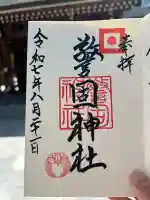 奉拝
警固神社
令和七年八月二十一日